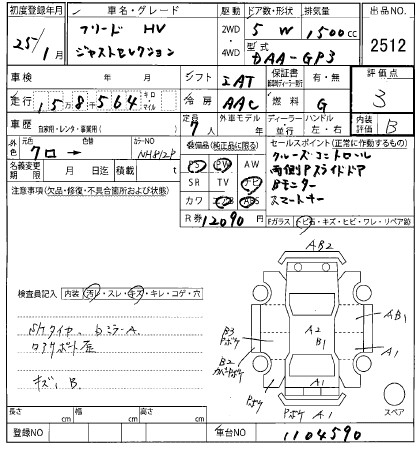 初度登録年月 車名・グレード 駆動 ドア数・形状 排気量 出品NO.
25/1月 フリード HV 2WD・4WD 5 W 1500cc 2512
ジャストセレクション 型式 DAA-GP3
車検 年 月 シフト IAT 保証書 有・無 評価点
走行 15万8千564 キロ マイル 冷房 AAC 燃料 G 3
車歴 自家用・レンタ・事業用( ) 定員 7人 外車モデル 年 ディーラー・並行 ハンドル 左・右 内装評価 B
外色 元色 クロ→ 色替 カラーNO NH812P 装備品(純正品に限る) セールスポイント(正常に作動するもの)
名義変更期限 月 日迄 積載 t PS PW AW クルーズコントロール
SR TV ナビ 両側Pスライドドア
カワ エアB ABS Bモニター
スマートキー
注意事項(欠品・修復・不具合箇所および状態) R券 12090円 Fガラス(トビ石・キズ・ヒビ・ワレ・リペア跡)
検査員記入 内装(汚レ・スレ・キズ・キレ・コゲ・穴)
キズ B.
AB2
AB1
A1
B3
Pボケ
A2
B1
B2
A1
Pボケ
Pボケ A1
スペア
長さ cm 幅 cm 高さ cm
登録NO 車台NO 1104590